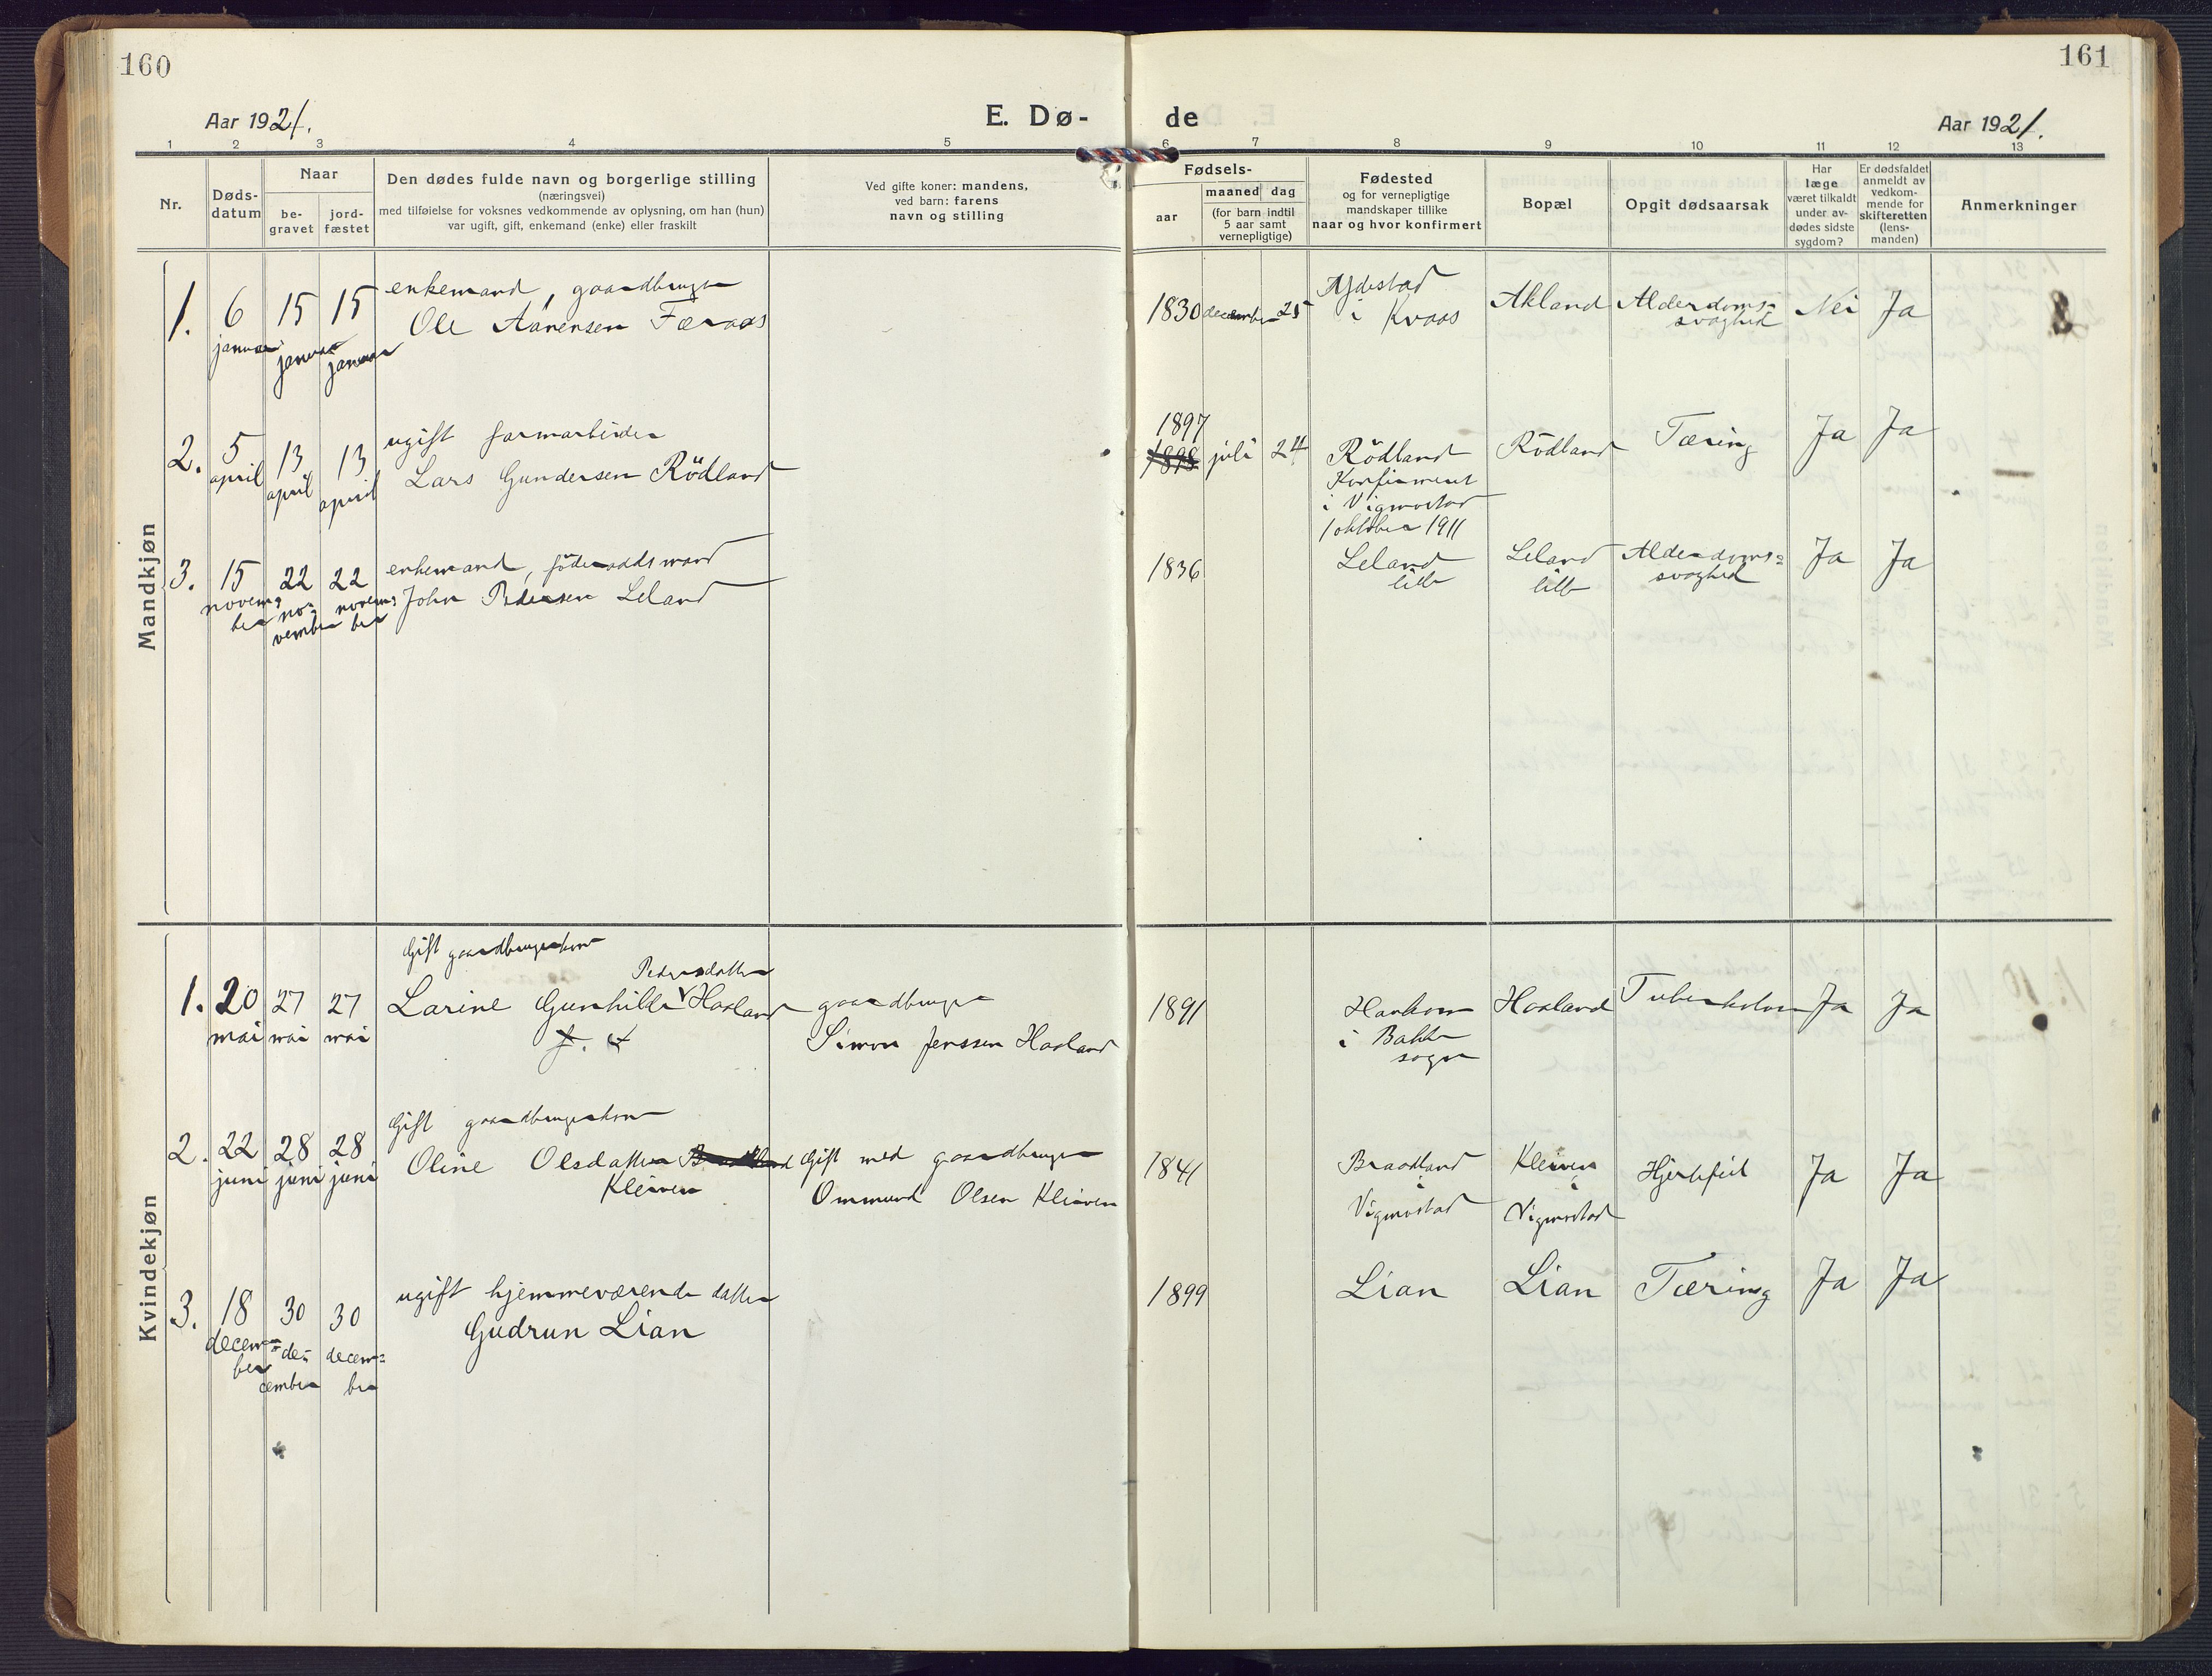 160
161
Aar 1921.
E. Dø-
de
Aar 1921.
1 2 3 4 5 6 7 8 9 10 11 12 13
Nr.
Døds-
datum
Naar
be-
gravet
jord-
fæstet
Den dødes fulde navn og borgerlige stilling
(næringsvei)
med tilføielse for voksnes vedkommende av oplysning, om han (hun)
var ugift, gift, enkemand (enke) eller fraskilt
Ved gifte koner: mandens,
ved barn: farens
navn og stilling
Fødsels-
aar
maaned dag
(for barn indtil
5 aar samt
vernepligtige)
Fødested
og for vernepligtige
mandskaper tillike
naar og hvor konfirmert
Bopæl
Opgit dødsaarsak
Har
læge
været tilkaldt
under av-
dødes sidste
sygdom?
Er dødsfaldet
anmeldt av
vedkom-
mende for
skifteretten
(lens-
manden)
Anmerkninger
Mandkjøn
enkemand, gaardbruger
1. 6 15 15 Ole Aanensen Færaas
januar januar januar
1830 december 25
i Kvaas
Akland
Alderdoms-
svaghed
Nei Ja
ugift farmarbeider
2. 5 13 13 Lars Gundersen Rödland
april april april
1897
1898 juli 24
Rödland
Konfirmert
i Vigmostad
1 oktober 1911
Rödland
Tæring
Ja Ja
enkemand, föderaadsmand
3. 15 22 22 John Pedersen Leland
novem=
ber
no=
vember
novem=
ber
1836
Leland
lille
Leland
lille
Alderdoms=
svaghed
Ja Ja
Kvindekjøn
Gift gaardbrugerkone
Pedersdatter
1. 20 27 27 Larine Gunhilde Haaland
mai mai mai
gaardbruger
Simon Jenssen Haaland
1891
i Bakke
sogn
Haaland
Tuberkulose
Ja Ja
Gift gaardbrugerkone
2. 22 28 28 Oline Olsdatter Braadland
juni juni juni
Kleiven
Gift med gaardbruger
Ommund Olsen Kleiven
1841
Braadland
i
Vigmostad
Kleiven
i
Vigmostad
Hjertefeil
Ja Ja
ugift hjemmeværende datter
3. 18 30 30 Gudrun Lian
decem=
ber
de=
cember
decem=
ber
1899
Lian
Lian
Tæring
Ja Ja